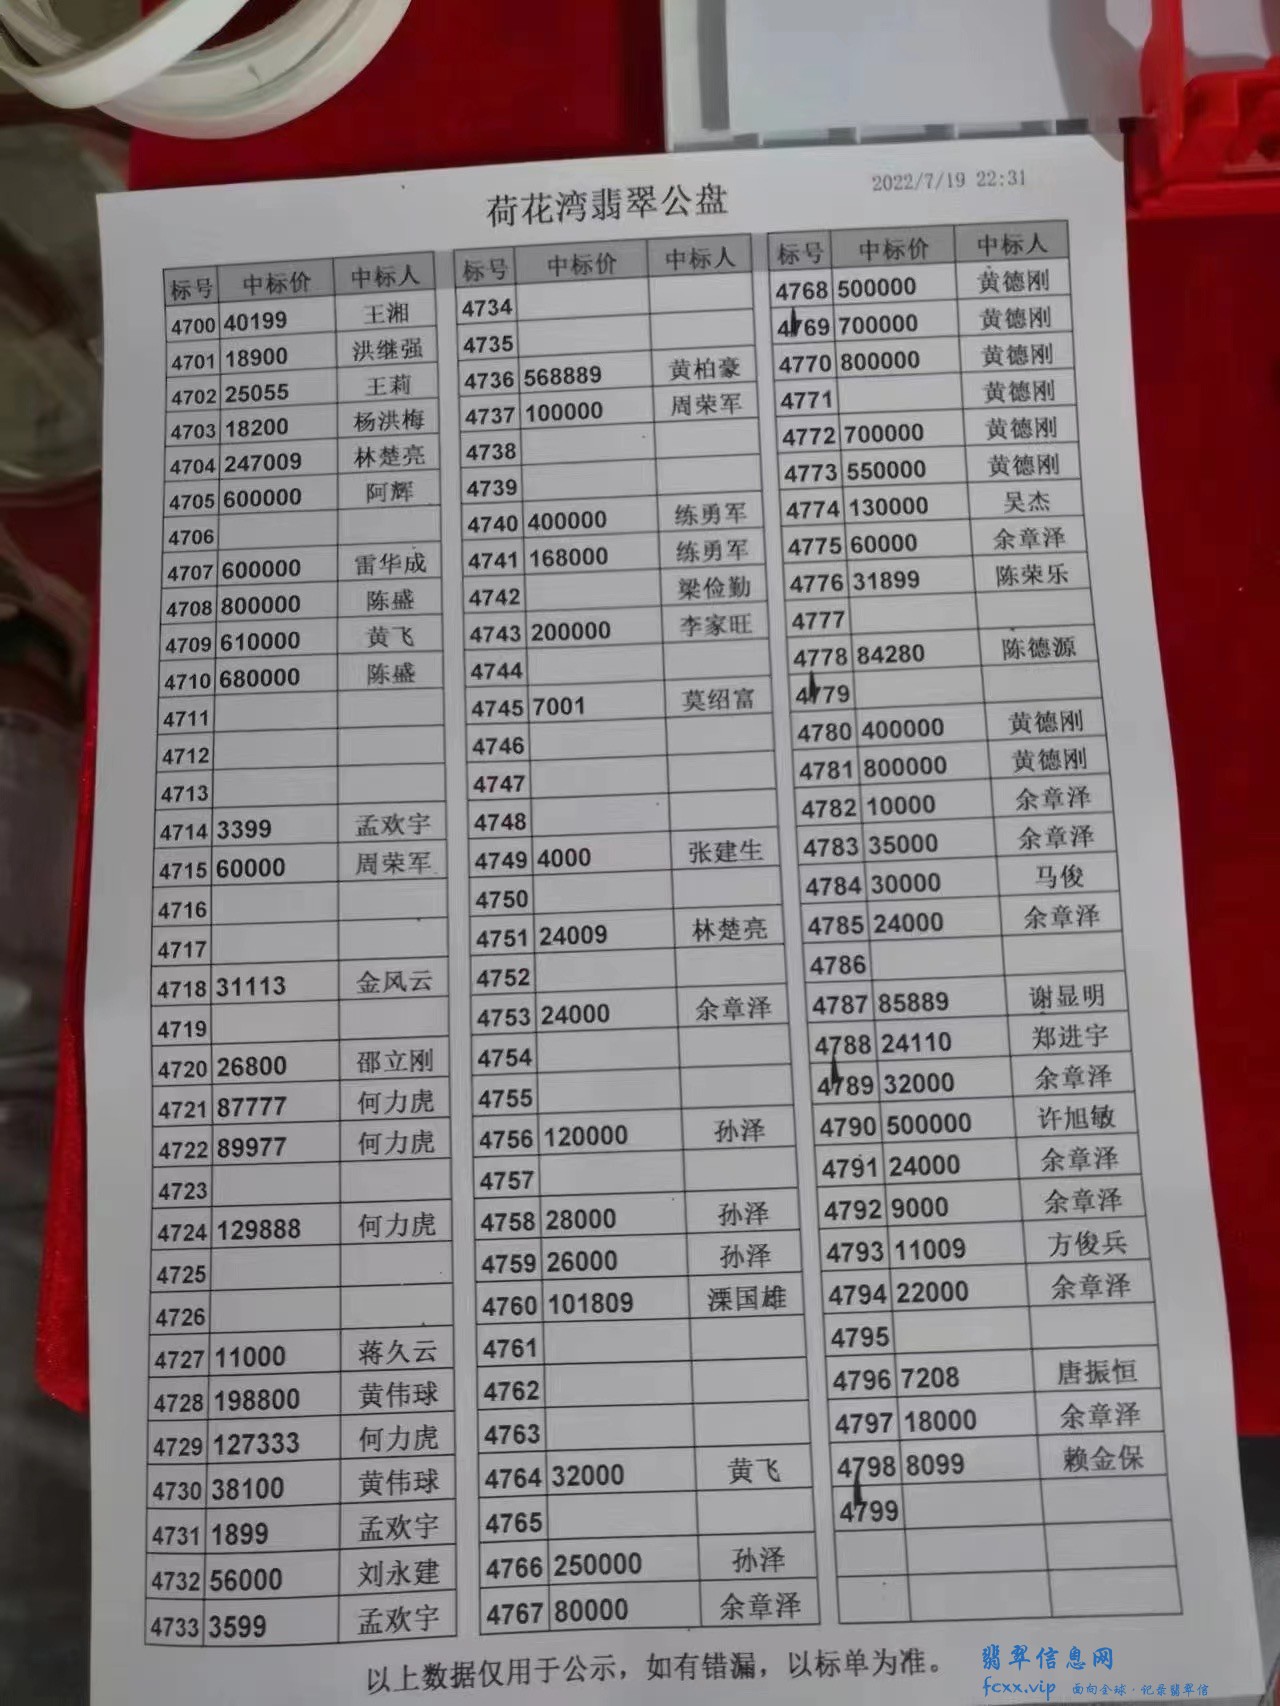 荷花湾翡翠公盘
2022/7/19 22:31
标号 中标价 中标人
4700 40199 王湘
4701 18900 洪继强
4702 25055 王莉
4703 18200 杨洪梅
4704 247009 林楚亮
4705 600000 阿辉
4706
4707 600000 雷华成
4708 800000 陈盛
4709 610000 黄飞
4710 680000 陈盛
4711
4712
4713
4714 3399 孟欢宇
4715 60000 周荣军
4716
4717
4718 31113 金风云
4719
4720 26800 邵立刚
4721 87777 何力虎
4722 89977 何力虎
4723
4724 129888 何力虎
4725
4726
4727 11000 蒋久云
4728 198800 黄伟球
4729 127333 何力虎
4730 38100 黄伟球
4731 1899 孟欢宇
4732 56000 刘永建
4733 3599 孟欢宇
标号 中标价 中标人
4734
4735
4736 568889 黄柏豪
4737 100000 周荣军
4738
4739
4740 400000 练勇军
4741 168000 练勇军
4742 梁俭勤
4743 200000 李家旺
4744
4745 7001 莫绍富
4746
4747
4748
4749 4000 张建生
4750
4751 24009 林楚亮
4752
4753 24000 余章泽
4754
4755
4756 120000 孙泽
4757
4758 28000 孙泽
4759 26000 孙泽
4760 101809 溧国雄
4761
4762
4763
4764 32000 黄飞
4765
4766 250000 孙泽
4767 80000 余章泽
标号 中标价 中标人
4768 500000 黄德刚
4769 700000 黄德刚
4770 800000 黄德刚
4771 黄德刚
4772 700000 黄德刚
4773 550000 黄德刚
4774 130000 吴杰
4775 60000 余章泽
4776 31899 陈荣乐
4777
4778 84280 陈德源
4779
4780 400000 黄德刚
4781 800000 黄德刚
4782 10000 余章泽
4783 35000 余章泽
4784 30000 马俊
4785 24000 余章泽
4786
4787 85889 谢显明
4788 24110 郑进宇
4789 32000 余章泽
4790 500000 许旭敏
4791 24000 余章泽
4792 9000 余章泽
4793 11009 方俊兵
4794 22000 余章泽
4795
4796 7208 唐振恒
4797 18000 余章泽
4798 8099 赖金保
4799
以上数据仅用于公示，如有错漏，以标单为准。
翡翠信息网
fcxx.vip 面向全球·记录翡翠信